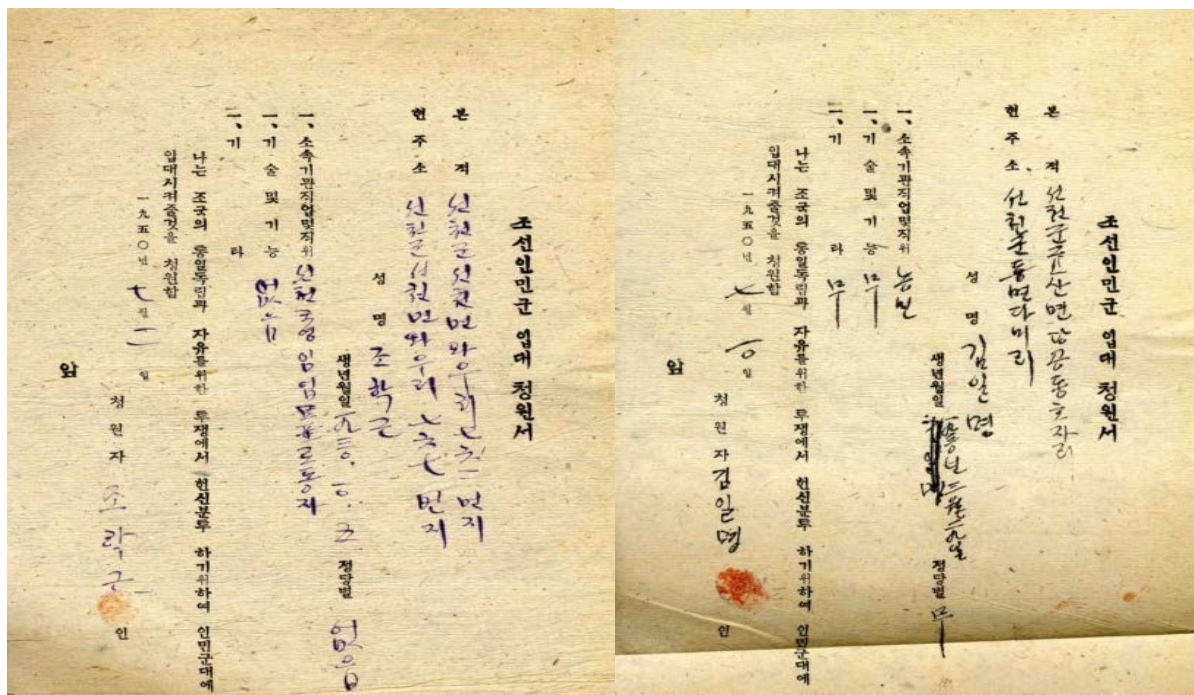 조선인민군 입대 청원서
본 적 선천군 선천면 와우리 번지
현주소 선천군 선천면 와우리 번지
성 명 조학근
생년월일 정당별 없음
一、소속기관직업및직위 로동자
一、기술및기능 없음
一、기 타
나는 조국의 통일독립과 자유를위한 투쟁에서 헌신분투 하기위하여 인민군대에
입대시켜줄것을 청원함
一九五〇년 七월 二 일
청원자 인
앞
조선인민군 입대 청원서
본 적 선천군
현주소 선천군 동면
성 명 김일명
생년월일 정당별 무
一、소속기관직업및직위 농민
一、기술및기능 무
一、기 타 무
나는 조국의 통일독립과 자유를위한 투쟁에서 헌신분투 하기위하여 인민군대에
입대시켜줄것을 청원함
一九五〇년 七월 일
청원자 김일명 인
앞